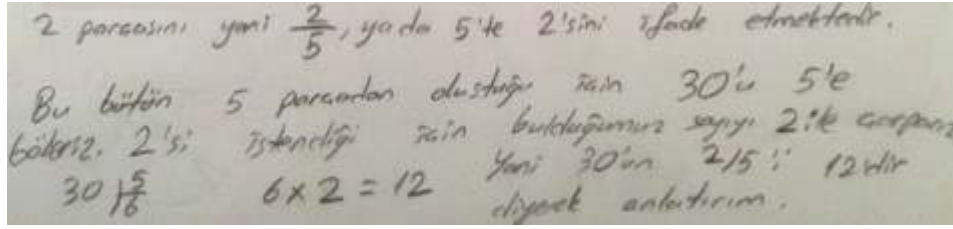 2 parçasını yani 2/5, yada 5'te 2'sini ifade etmektedir.
Bu bütün 5 parçadan oluştuğu için 30'u 5'e
böleriz. 2'si istendiği için bulduğumuz sayıyı 2 ile çarparız
30 | 5 6 6 x 2 = 12 Yani 30'un 2/5'i 12'dir
diyerek anlatırım.